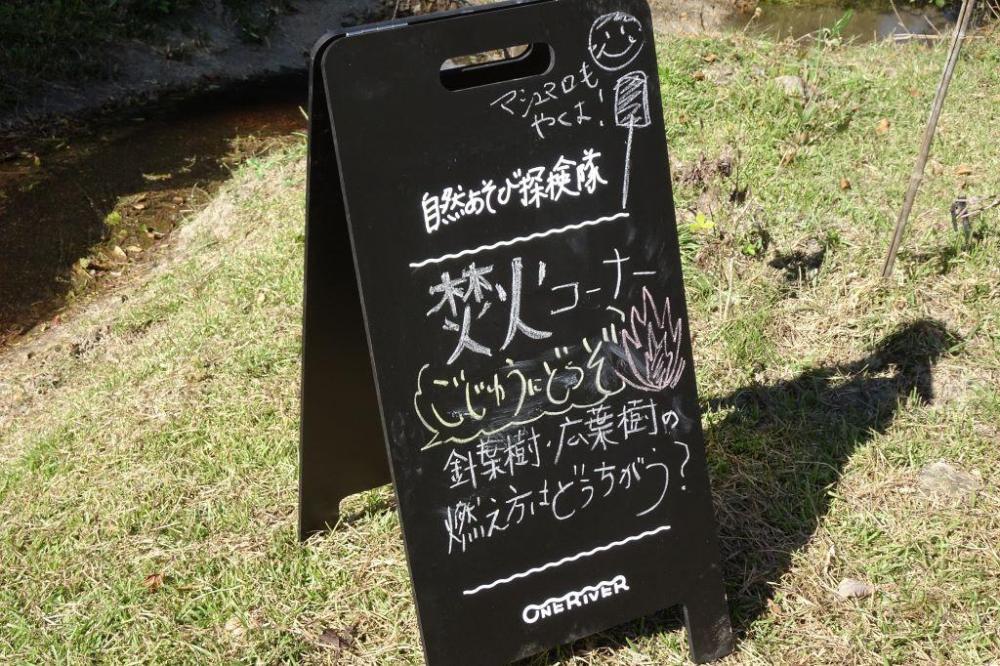 マシュマロも
やくよ!
自然あそび探検隊
焚火コーナー
ごじゆうにどうぞ
針葉樹・広葉樹の
燃え方はどうちがう?
ONE RIVER